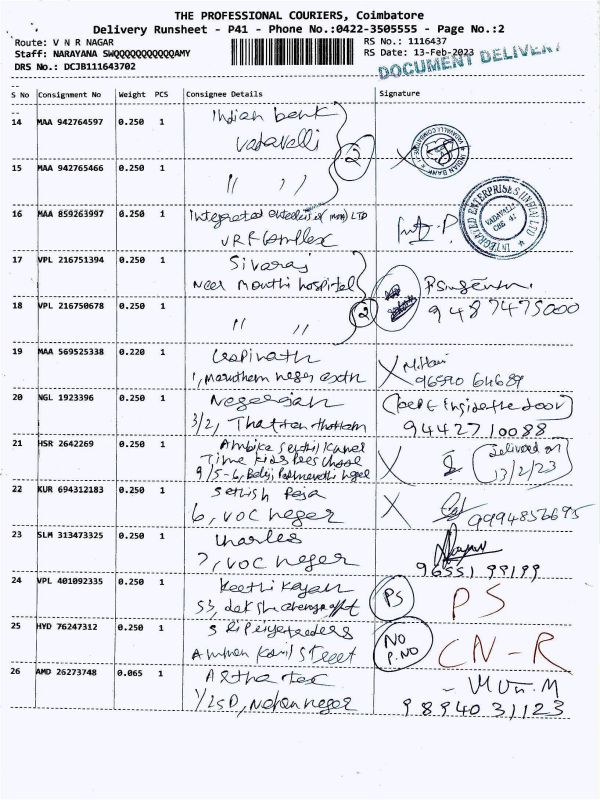 THE PROFESSIONAL COURIERS, Coimbatore
Delivery Runsheet - P41 - Phone No.:0422-3505555 - Page No.:2
Route: V N R NAGAR
RS No.: 1116437
Staff: NARAYANA SWQQQQQQQQQQQAMY
RS Date: 13-Feb-2023
DOCUMENT DELIVERY
DRS No.: DCJB111643702
S No Consignment No Weight PCS Consignee Details Signature
14 MAA 942764597 0.250 1 Indian bank
Vadavalli
2
15 MAA 942765466 0.250 1 " "
16 MAA 859263997 0.250 1 Integrated LTD
VRR Complex
INTEGRATED ENTERPRISES (INDIA) LTD
VADAVALLI
CBE 41
17 VPL 216751394 0.250 1 Sivaraj
Near Mouthi hospital
18 VPL 216750678 0.250 1 " " 2
9487475000
19 MAA 569525338 0.220 1 Gopinath
1, Marutham nagar M. Hari
20 NGL 1923396 0.250 1 Nagarajan
3/2, Thottam (keep inside the door)
9442710088
21 HSR 2642269 0.250 1 Ambika Senthil Kumar
Time Kids
Delivered on
13/2/23
22 KUR 694312183 0.250 1 Sathish Raja
6, VOC nagar 9994856695
23 SLM 313473325 0.250 1 Charles
7, VOC nagar
96551 99199
24 VPL 401092335 0.250 1 Keerthi Kayan PS PS
53,
25 HYD 76247312 0.250 1 Sri Priya traders NO
P.NO CN-R
Amman Kovil Street
26 AMD 26273748 0.065 1 Astha tex
1/25D, Mohan nagar 9894031123